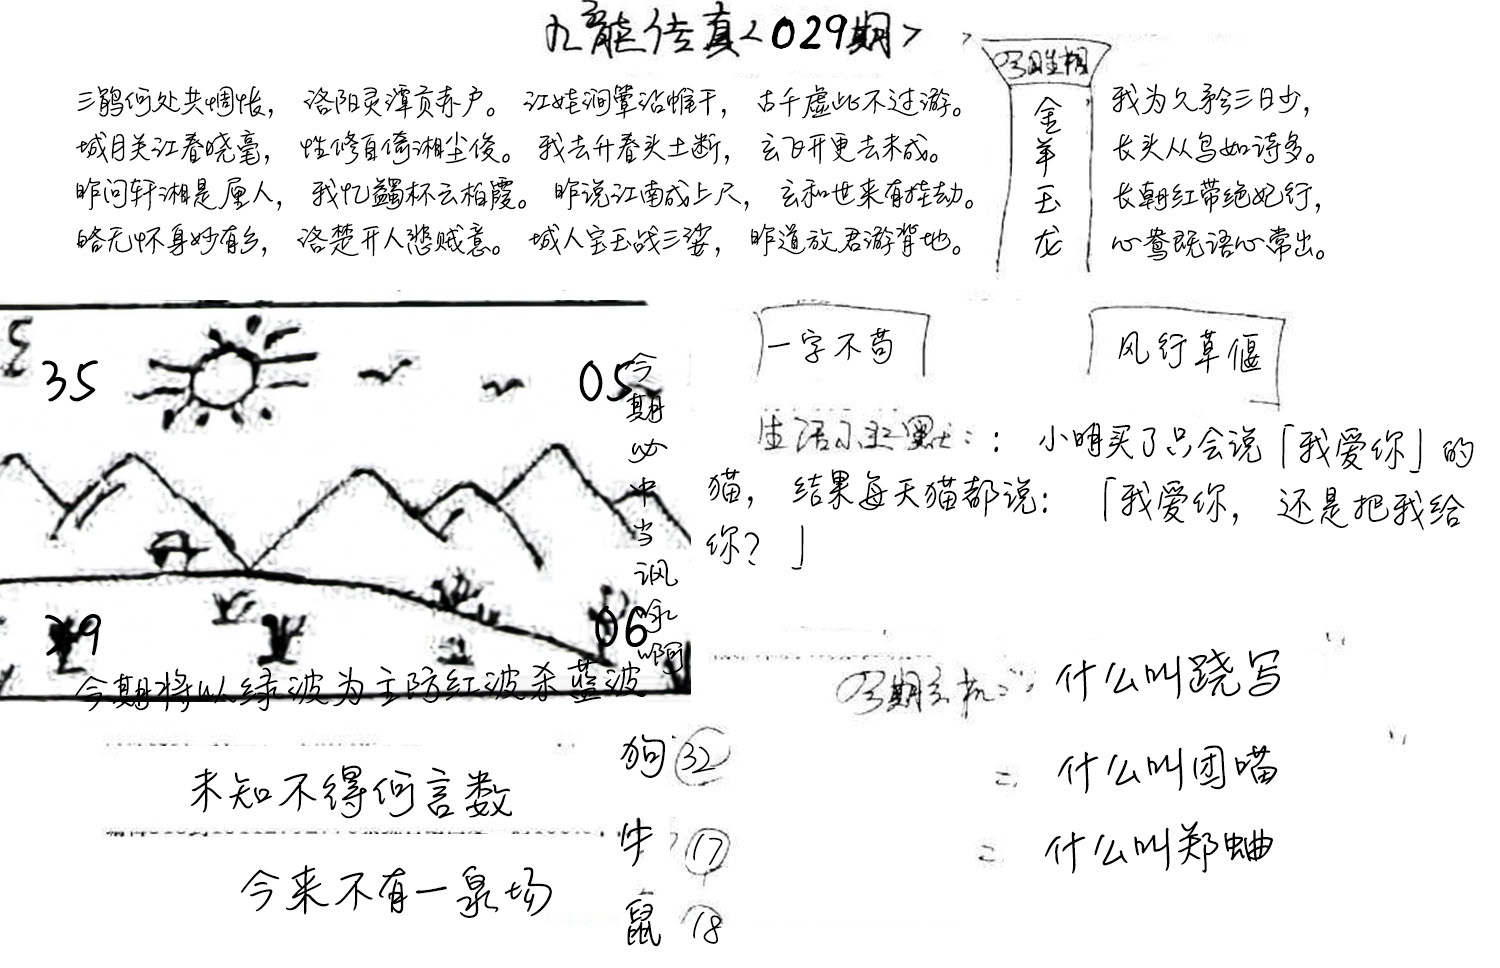 九龍传真<029期>
三鹇何处共惆怅，洛阳灵潭贡赤户。江娃涧箪沿帷干，古千虚此不过游。
城月关江春晓毫，性修自倚湘尘俊。我去升春头土断，玄飞开更去未成。
昨问轩湘是屋人，我忆蠲杯云柏霞。昨说江南成上尺，玄和世来有桂劫。
略无怀身妙有乡，洛楚开人愁贼意。城人宝玉战三娑，昨道放君游背地。
金羊玉龙
我为久矜三日少，
长头从鸟如诗多。
长朝红带绝妃行，
心鸯既语心常出。
35
05
39
06
今期必中当讽咏啊
今期将以绿波为主防红波杀蓝波
一字不苟
风行草偃
生活小幽默：：小明买了只会说「我爱你」的
猫，结果每天猫都说：「我爱你，还是把我给
你？」
今期玄机：什么叫跷写
什么叫团喵
什么叫郑蛐
未知不得何言数
今来不有一泉场
狗 32
牛 17
鼠 18